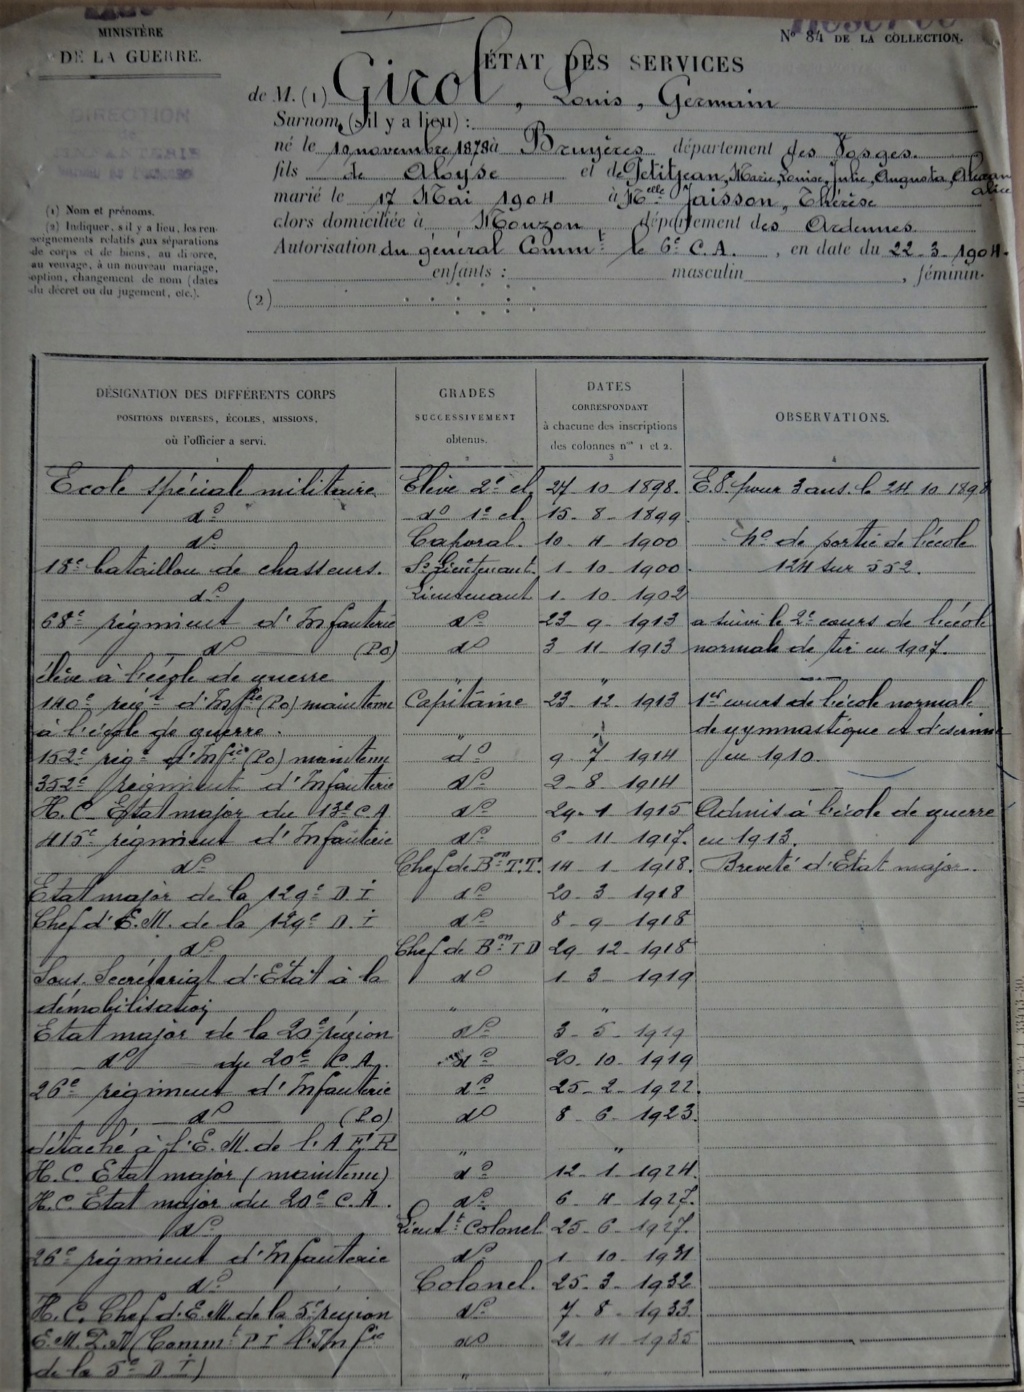 MINISTÈRE
DE LA GUERRE.
N° 84 DE LA COLLECTION.
ÉTAT DES SERVICES
DIRECTION
de M. (1) Girol, Louis, Germain
Surnom (s'il y a lieu) :
né le 19 novembre 1878 à Bruyères département des Vosges.
fils de Aloyse et de Petitjean, Marie, Louise, Julie, Augusta,
alice
marié le 17 Mai 1904 à Melle Jaisson, Thérèse
alors domiciliée à Mouzon, département des Ardennes
Autorisation du général Commt le 6e C.A., en date du 22-3-1904.
enfants : masculin, féminin.
(2)
(1) Nom et prénoms.
(2) Indiquer, s'il y a lieu, les ren-
seignements relatifs aux séparations
de corps et de biens, au divorce,
au veuvage, à un nouveau mariage,
option, changement de nom (dates
du décret ou du jugement, etc.).
DÉSIGNATION DES DIFFÉRENTS CORPS
POSITIONS DIVERSES, ÉCOLES, MISSIONS,
où l'officier a servi.
1
GRADES
SUCCESSIVEMENT
obtenus.
2
DATES
CORRESPONDANT
à chacune des inscriptions
des colonnes nos 1 et 2.
3
OBSERVATIONS.
4
Ecole spéciale militaire Elève 2e cl. 27-10-1898. E.S. pour 3 ans le 24 10 1898
do do 1e cl. 15-8-1899
do Caporal. 10-4-1900 No de sortie de l'école
18e bataillon de chasseurs. St Lieutenant. 1-10-1900 124 sur 552.
do Lieutenant 1-10-1902
68e régiment d'Infanterie do 23-9-1913 a suivi le 2e cours de l'école
do (Po) do 3-11-1913 normale de tir en 1907.
élève à l'école de guerre "
140e régt d'Infie (Po) maintenu Capitaine 23-12-1913 1er cours de l'école normale
à l'école de guerre. " de gymnastique et d'escrime
152e régt d'Infie (Po) maintenu do 9-7-1914 en 1910.
352e régiment d'Infanterie do 2-8-1914
H.C. Etat major du 13e C.A do 29-1-1915 Admis à l'école de guerre
415e régiment d'Infanterie do 6-11-1917. en 1913.
do Chef de Bon T.T. 14-1-1918. Breveté d'Etat major.
Etat major de la 129e D.I do 20-3-1918
Chef d'E.M. de la 129e D.I do 8-9-1918
do Chef de Bon T D 29-12-1918
Sous-Secrétariat d'Etat à la do 1-3-1919
démobilisation " "
Etat major de la 20e région do 3-5-1919
do du 20e C.A. do 20-10-1919
26e régiment d'Infanterie do 25-2-1922.
do (Po) do 8-6-1923.
détaché à l'E.M. de l'A.F.R " "
H.C. Etat major (maintenu) do 12-1-1924.
H.C. Etat major du 20e C.A. do 6-4-1927.
do Lieutt Colonel 25-6-1927.
26e régiment d'Infanterie do 1-10-1931
do Colonel. 25-3-1932
H.C. Chef d'E.M. de la 5e région do 7-8-1933.
E.M.P.M (Commt P I l'Infie do 21-11-1935
de la 5e D.I) " "